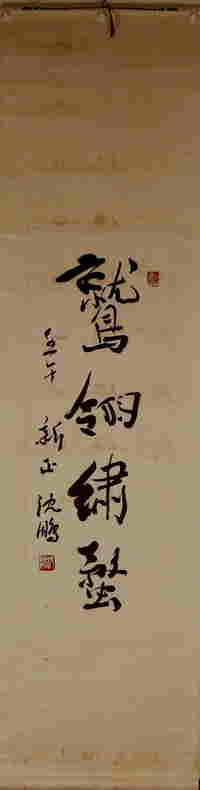 鷲翎繡蝥
壬午
新正沈鵬